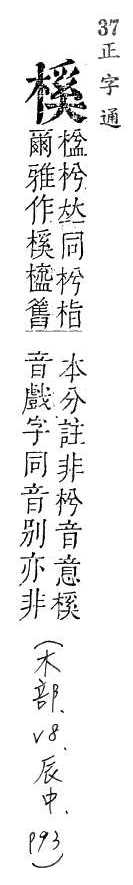 37 正字通
榽
橀枍𠀤同枍栺
爾雅作榽橀舊
本分註非枍音意榽
音戲字同音別亦非
(木部、v8、辰中、p93)